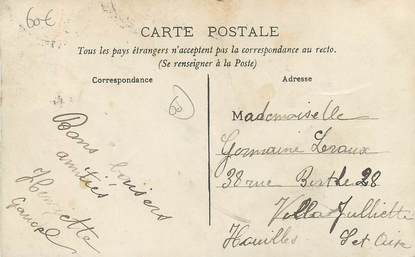 60€
CARTE POSTALE
Tous les pays étrangers n'acceptent pas la correspondance au recto.
(Se renseigner à la Poste)
Correspondance
Adresse
Bons baisers
amitiés
Henriette
Mademoiselle
Germaine Leroux
38 rue Berthe 28
Villa Julliette
Houilles Set Oise